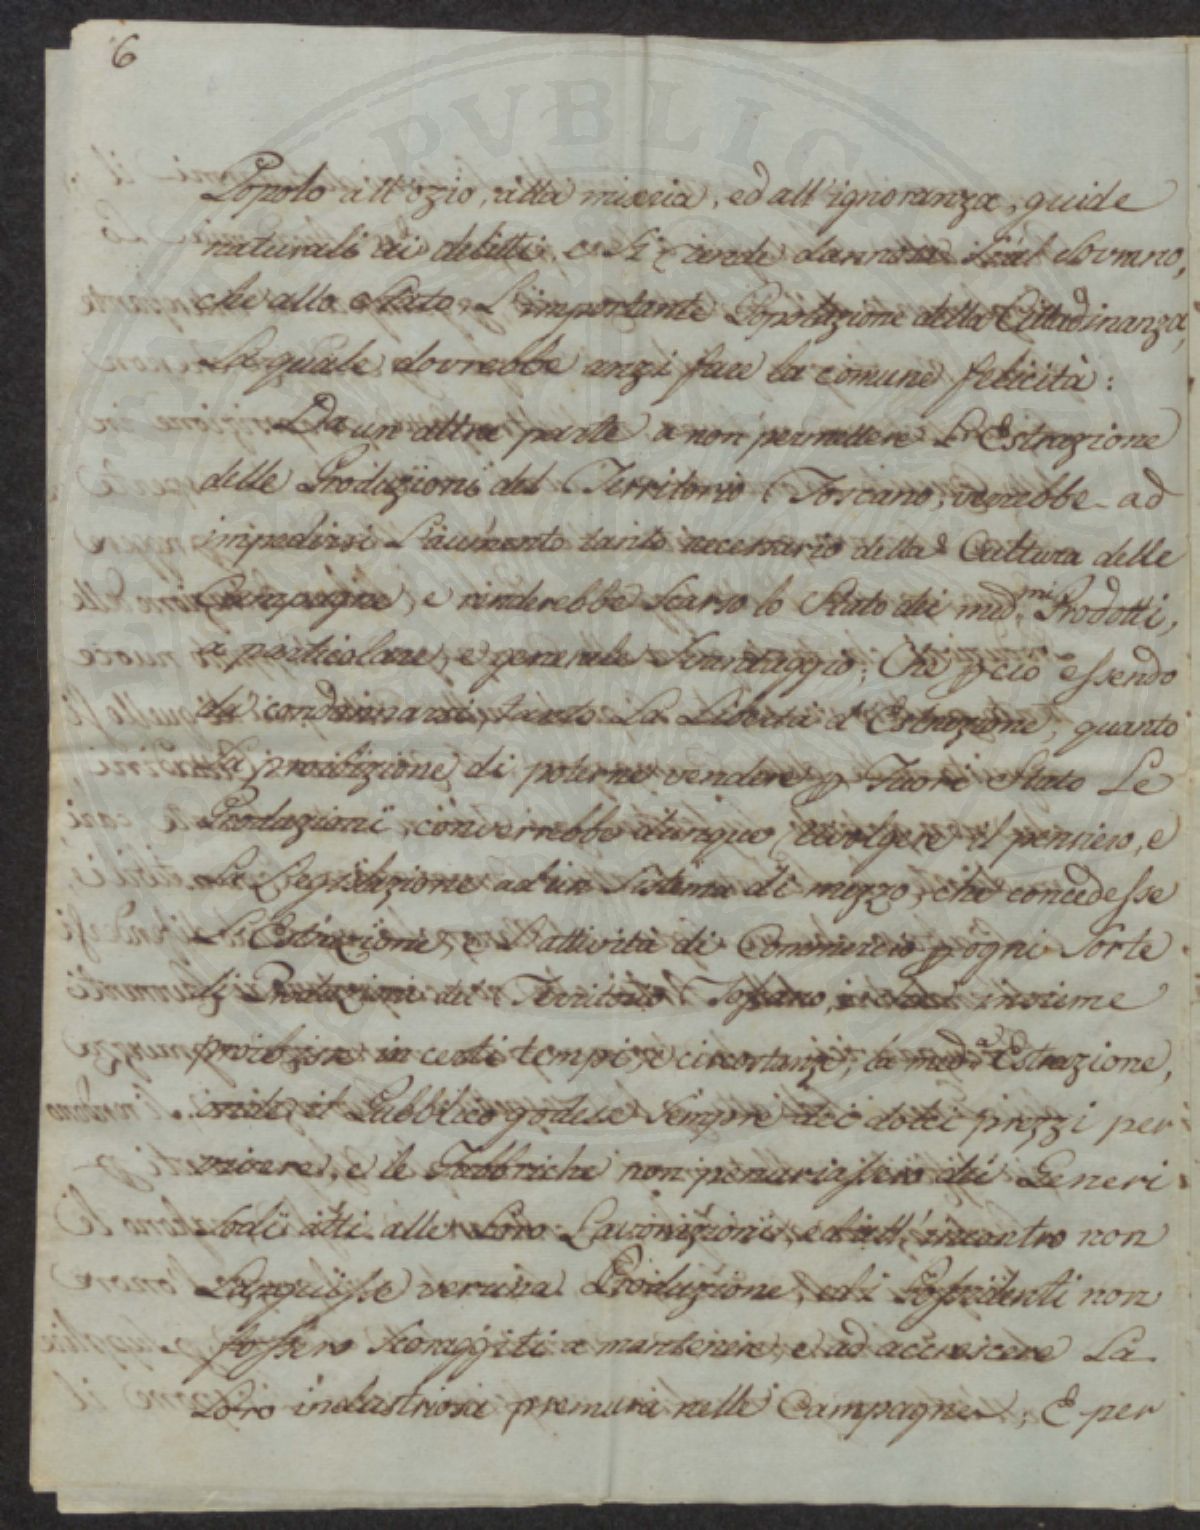 6
Popolo all'ozio, alla miseria, ed all'ignoranza, guide
naturali ai delitti, e si rende dannosa sì al Sovrano,
che allo Stato L'importante Popolazione della Cittadinanza,
La quale dovrebbe anzi fare la comune felicità:
Da un altra parte a non permettere L'Estrazione
delle Produzioni del Territorio Toscano, verebbe ad
impedirsi L'aumento tanto necessario della Cultura delle
Campagne, e renderebbe scarso lo Stato dei med.mi Prodotti,
a particolare, e generale Svantaggio; Che p ciò essendo
da condannarsi tanto La Libertà d'Estrazione, quanto
La proibizione di poterne vendere p Fuori Stato Le
Produzioni, converrebbe dunque rivolgere il pensiero, e
La Legislazione ad un Sistema di mezzo, che concedesse
L'Estrazione, e L'attività di Commercio p ogni Sorte
di Produzioni del Territorio Toscano, insieme
proibisse in certi tempi, e circostanze, la med.a Estrazione,
onde il Pubblico godesse Sempre dei dolci prezzi per
vivere, e le Fabbriche non penuriassero dei Generi
Sodi atti alle Loro Lavorazioni, ed all'incontro non
Languisse veruna Produzione, ed i Possidenti non
fossero Scoraggiti a mantenere, e ad accrescere La
Loro industriosa premura nelle Campagne; E per
PVBLIC